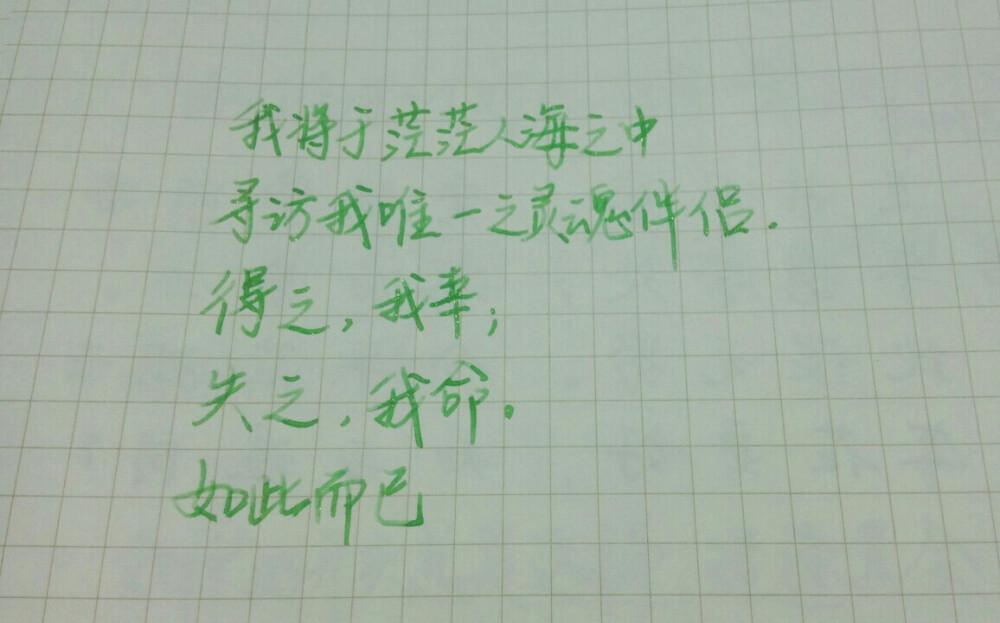 我将于茫茫人海之中
寻访我唯一之灵魂伴侣.
得之,我幸;
失之,我命。
如此而已